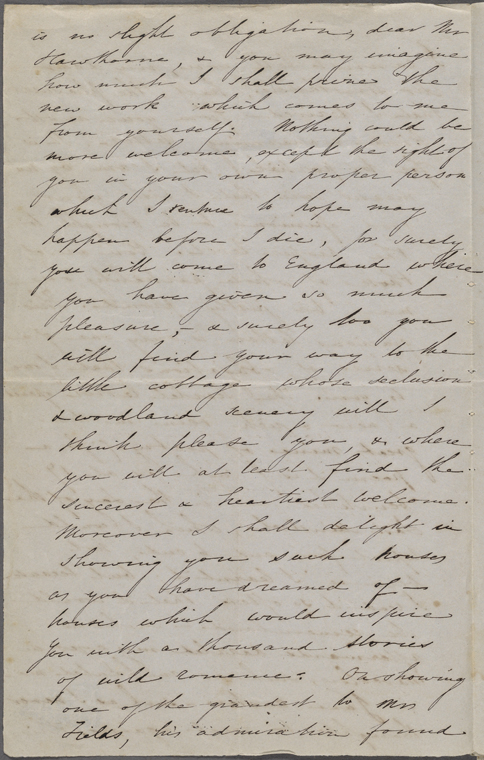 is no slight obligation, dear Mr
Hawthorne, & you may imagine
how much I shall prize the
new work which comes to me
from yourself. Nothing could be
more welcome, except the sight of
you in your own proper person
which I venture to hope may
happen before I die, for surely
you will come to England where
you have given so much
pleasure, - & surely too you
will find your way to the
little cottage whose seclusion
& woodland scenery will I
think please you, & where
you will at least find the
sincerest & heartiest welcome.
Moreover I shall delight in
showing you such houses
as you have dreamed of —
houses which would inspire
you with a thousand stories
of wild romance. On showing
one of the grandest to Mr
Fields, his admiration found